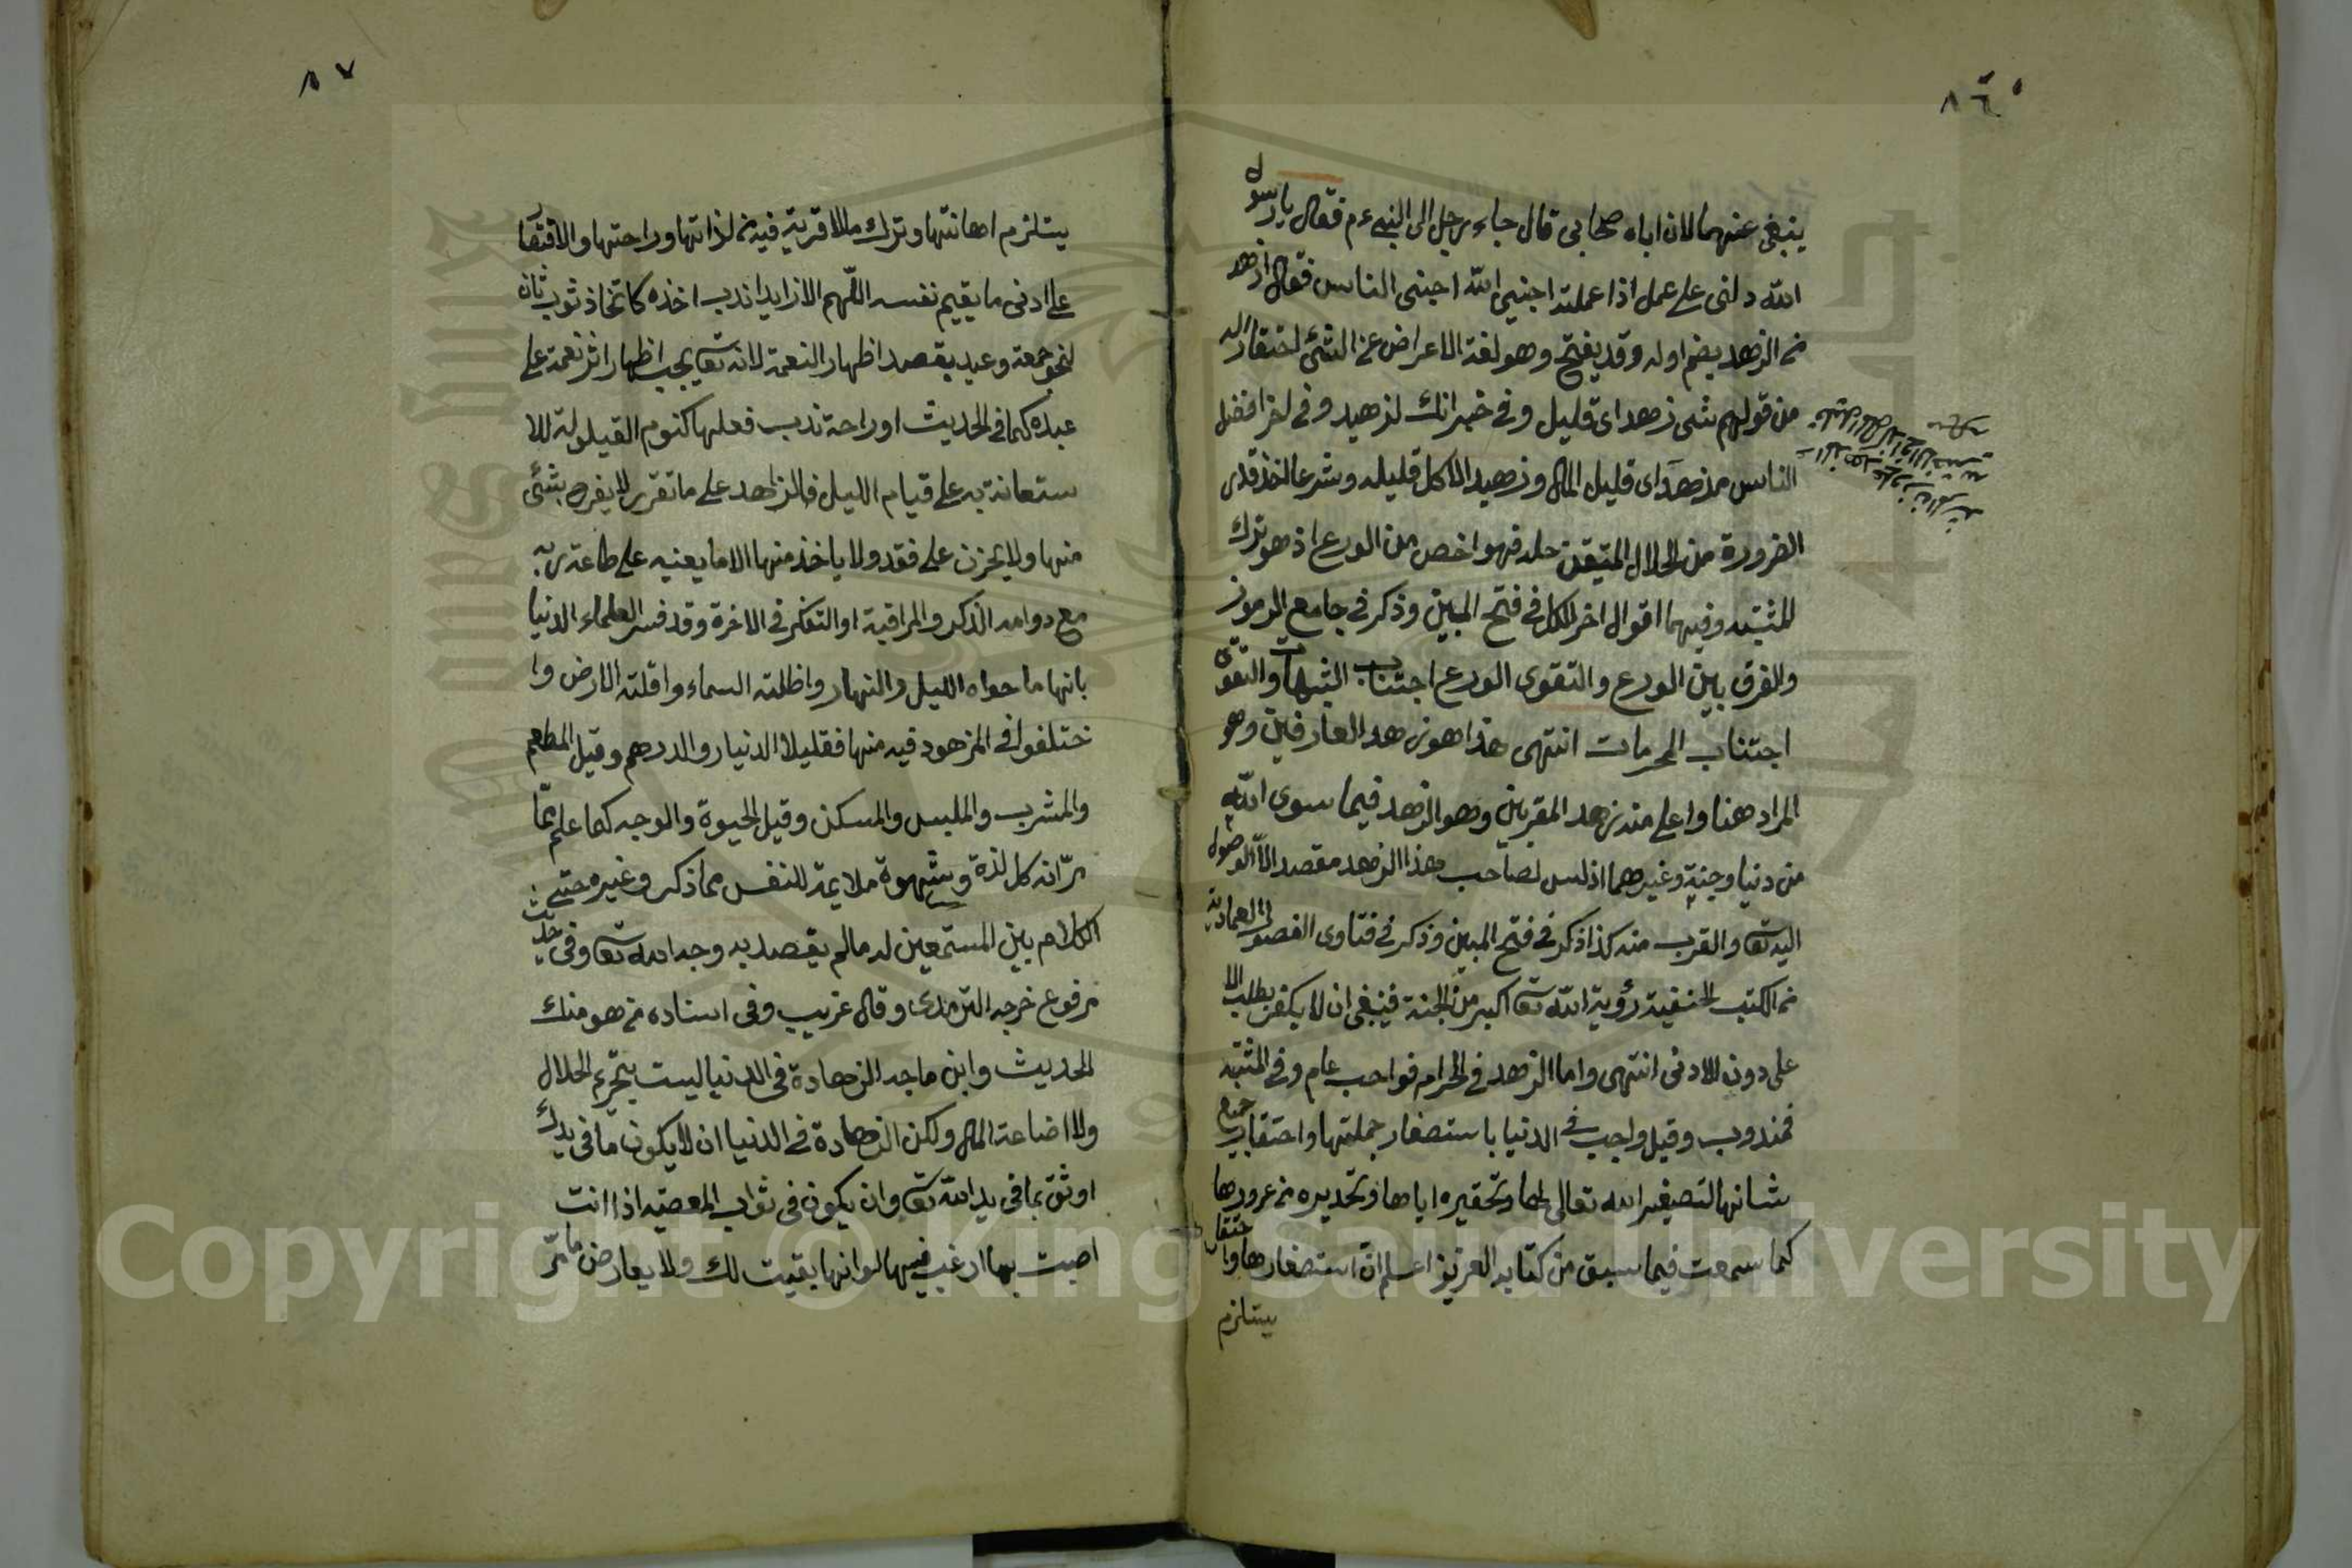 ٨٦
ينبغى عنهما لان اباه صحابى قال جاء رجل الى النبى ءم فقال يا رسول
الله دلنى على عمل اذا عملته احبنى الله احبنى الناس فقال ازهد
من الزهد بضم اوله وقد يفتح وهو لغة الاعراض عن الشئ احتقارا له
من قولهم شئ زهد اى قليل وفى خبر انك لزهيد وفى اخر افضل
الناس مزهد اى قليل المال وزهيد الاكل قليله وشرعا اخذ قدر
الضرورة من الحلال المتيقن حله فهو اخص من الورع اذ هو ترك
المشتبه وفيهما اقوال اخر الكل فى فتح المبين وذكر فى جامع الرموز
والفرق بين الورع والتقوى الورع اجتناب الشبهات والتقوى
اجتناب المحرمات انتهى هذا هو زهد العارفين وهو
المراد هنا واعلى منه زهد المقربين وهو الزهد فيما سوى الله
من دنيا وجنة وغيرهما اذ ليس لصاحب هذا الزهد مقصد الا الوصول
اليه تعا والقرب منه كذا ذكر فى فتح المبين وذكر فى فتاوى الفصول العمادية
من الكتب الحنفية رؤية الله تعا اكبر من الجنة فينبغى ان لا يكفر بطلب الا
على دون الادنى انتهى واما الزهد فى الحرام فواجب عام وفى المشتبه
فمندوب وقيل واجب فى الدنيا باستصغار جملتها واحتقار جميع
شانها لتصغير الله تعالى لها وتحقيره اياها وتحذيره من غرورها
كما سمعت فيما سبق من كتابه العزيز اعلم ان استصغارها واحتقار
يستلزم
٨٧
يستلزم اهانتها وترك ما لا قربة فيه من لذاتها وراحتها والاقتصا
على ادنى ما يقيم نفسه اللهم الا زايدا ندب اخذه كاتخاذ ثوب ثان
لنحو جمعة وعيد بقصد اظهار النعمة لانه تعا يحب اظهار اثر نعمة على
عبده كما فى الحديث او راحة ندب فعلها كنوم القيلولة للا
ستعانة به على قيام الليل فالزاهد على ما تقرر لا يفرح بشئ
منها ولا يحزن على فقد ولا ياخذ منها الا ما يعنيه على طاعة ربه
مع دوامه الذكر والمراقبة او التفكر فى الاخرة وقد فسر العلماء الدنيا
بانها ما حواه الليل والنهار واظلته السماء واقلته الارض وا
ختلفوا فى المزهود فيه منها فقيل الدنيار والدرهم وقيل المطعم
والمشرب والملبس والمسكن وقيل الحيوة والوجه كما علم مما
مر انه كل لذة وشهوة ملايمة للنفس مما ذكر وغيره حتى
الكلام بين المستمعين له ما لم يقصد به وجه الله تعا وفى حديث
مرفوع خرجه الترمذى وقال غريب وفى اسناده من هو منك
الحديث وابن ماجه الزهادة فى الدنيا ليست بتحريم الحلال
ولا اضاعة المال ولكن الزهادة فى الدنيا ان لا يكون ما فى يدك
اوثق بما فى يد الله تعا وان يكون فى ثواب المعصيه اذا انت
اصبت بها ارغب فيها لو انها بقيت لك ولا يعارض ما مر
Copyright © King Saud University